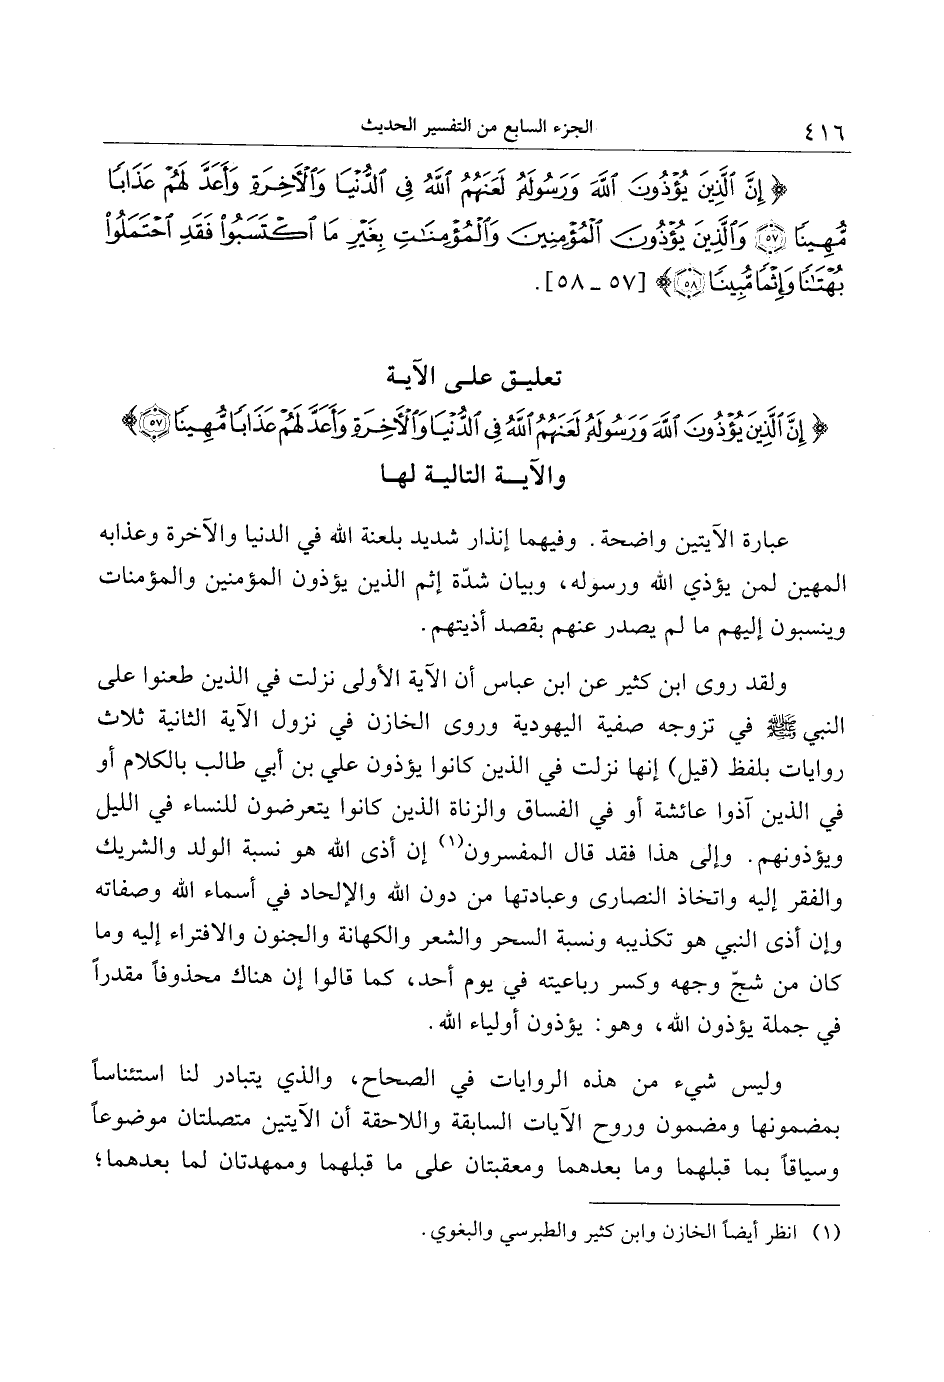 ٤١٦ الجزء السابع من التفسير الحديث
﴿ إِنَّ ٱلَّذِينَ يُؤْذُونَ ٱللَّهَ وَرَسُولَهُۥ لَعَنَهُمُ ٱللَّهُ فِى ٱلدُّنْيَا وَٱلْأَخِرَةِ وَأَعَدَّ لَهُمْ عَذَابًا
مُّهِينًا ٥٧ وَٱلَّذِينَ يُؤْذُونَ ٱلْمُؤْمِنِينَ وَٱلْمُؤْمِنَٰتِ بِغَيْرِ مَا ٱكْتَسَبُوا۟ فَقَدِ ٱحْتَمَلُوا۟
بُهْتَٰنًا وَإِثْمًا مُّبِينًا ٥٨ ﴾ [٥٧ - ٥٨].
تعليق على الآية
﴿ إِنَّ ٱلَّذِينَ يُؤْذُونَ ٱللَّهَ وَرَسُولَهُۥ لَعَنَهُمُ ٱللَّهُ فِى ٱلدُّنْيَا وَٱلْأَخِرَةِ وَأَعَدَّ لَهُمْ عَذَابًا مُّهِينًا ٥٧ ﴾
والآية التالية لها
عبارة الآيتين واضحة. وفيهما إنذار شديد بلعنة الله في الدنيا والآخرة وعذابه
المهين لمن يؤذي الله ورسوله، وبيان شدّة إثم الذين يؤذون المؤمنين والمؤمنات
وينسبون إليهم ما لم يصدر عنهم بقصد أذيتهم.
ولقد روى ابن كثير عن ابن عباس أن الآية الأولى نزلت في الذين طعنوا على
النبي ﷺ في تزوجه صفية اليهودية وروى الخازن في نزول الآية الثانية ثلاث
روايات بلفظ (قيل) إنها نزلت في الذين كانوا يؤذون علي بن أبي طالب بالكلام أو
في الذين آذوا عائشة أو في الفساق والزناة الذين كانوا يتعرضون للنساء في الليل
ويؤذونهم. وإلى هذا فقد قال المفسرون(١) إن أذى الله هو نسبة الولد والشريك
والفقر إليه واتخاذ النصارى وعبادتها من دون الله والإلحاد في أسماء الله وصفاته
وإن أذى النبي هو تكذيبه ونسبة السحر والشعر والكهانة والجنون والافتراء إليه وما
كان من شجّ وجهه وكسر رباعيته في يوم أحد، كما قالوا إن هناك محذوفاً مقدراً
في جملة يؤذون الله، وهو: يؤذون أولياء الله.
وليس شيء من هذه الروايات في الصحاح، والذي يتبادر لنا استئناساً
بمضمونها ومضمون وروح الآيات السابقة واللاحقة أن الآيتين متصلتان موضوعاً
وسياقاً بما قبلهما وما بعدهما ومعقبتان على ما قبلهما وممهدتان لما بعدهما؛
(١) انظر أيضاً الخازن وابن كثير والطبرسي والبغوي.